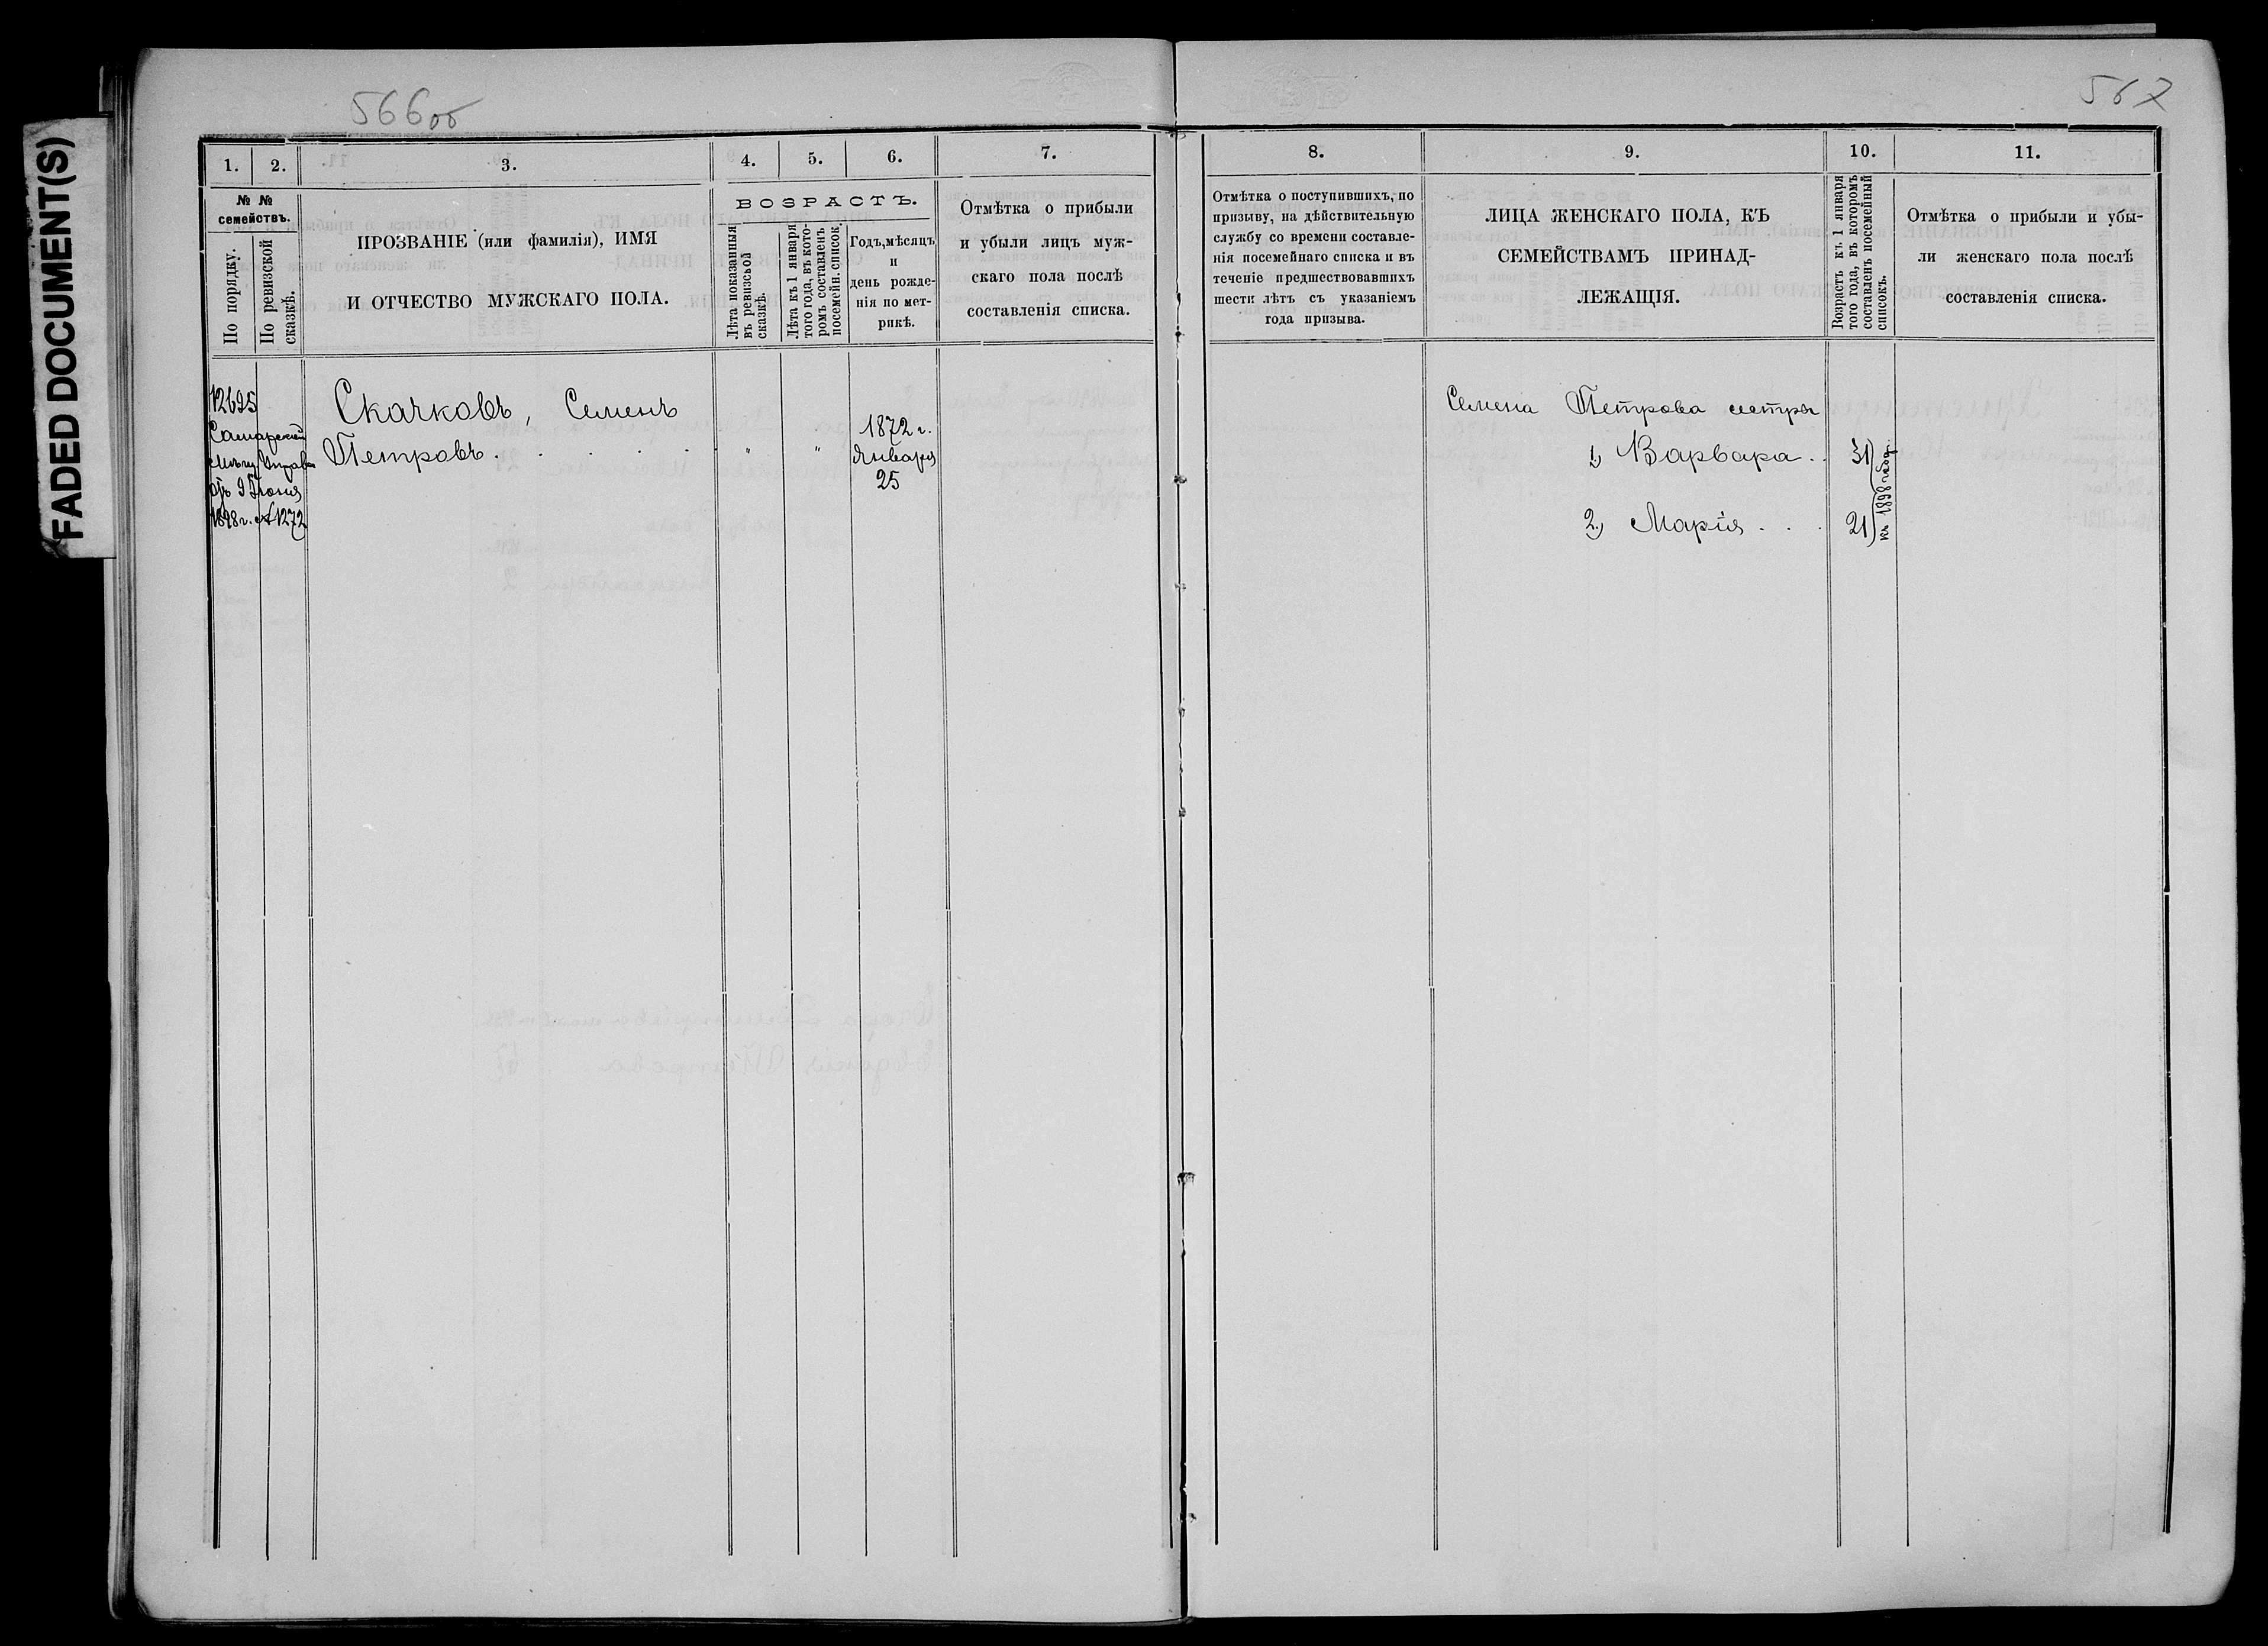 FADED DOCUMENT(S)
566об
567
1.
2.
3.
4.
5.
6.
7.
№ №
семействъ.
По порядку.
По ревизской
сказкѣ.
ПРОЗВАНІЕ (или фамилія), ИМЯ
И ОТЧЕСТВО МУЖСКАГО ПОЛА.
ВОЗРАСТЪ.
Лѣта показанныя
въ ревизской
сказкѣ.
Лѣта къ 1 января
того года, въ кото-
ромъ составленъ
посемейн. список.
Годъ, мѣсяцъ
и
день рожде-
нія по мет-
рикѣ.
Отмѣтка о прибыли
и убыли лицъ муж-
скаго пола послѣ
составленія списка.
12695
Самарской
Мѣщ. Управы
отъ 9 Іюня
1898 г. № 1272
Скачковъ, Семенъ
Петровъ . . . . .
"
"
1872 г.
Января
25
8.
9.
10.
11.
Отмѣтка о поступившихъ, по
призыву, на дѣйствительную
службу со времени составле-
нія посемейнаго списка и въ
теченіе предшествовавшихъ
шести лѣтъ съ указаніемъ
года призыва.
ЛИЦА ЖЕНСКАГО ПОЛА, КЪ
СЕМЕЙСТВАМЪ ПРИНАД-
ЛЕЖАЩІЯ.
Возрастъ къ 1 января
того года, въ которомъ
составленъ посемейный
списокъ.
Отмѣтка о прибыли и убы-
ли женскаго пола послѣ
составленія списка.
Семена Петрова сестры
1) Варвара . .
31
2) Марія . . .
21
къ 1898 году